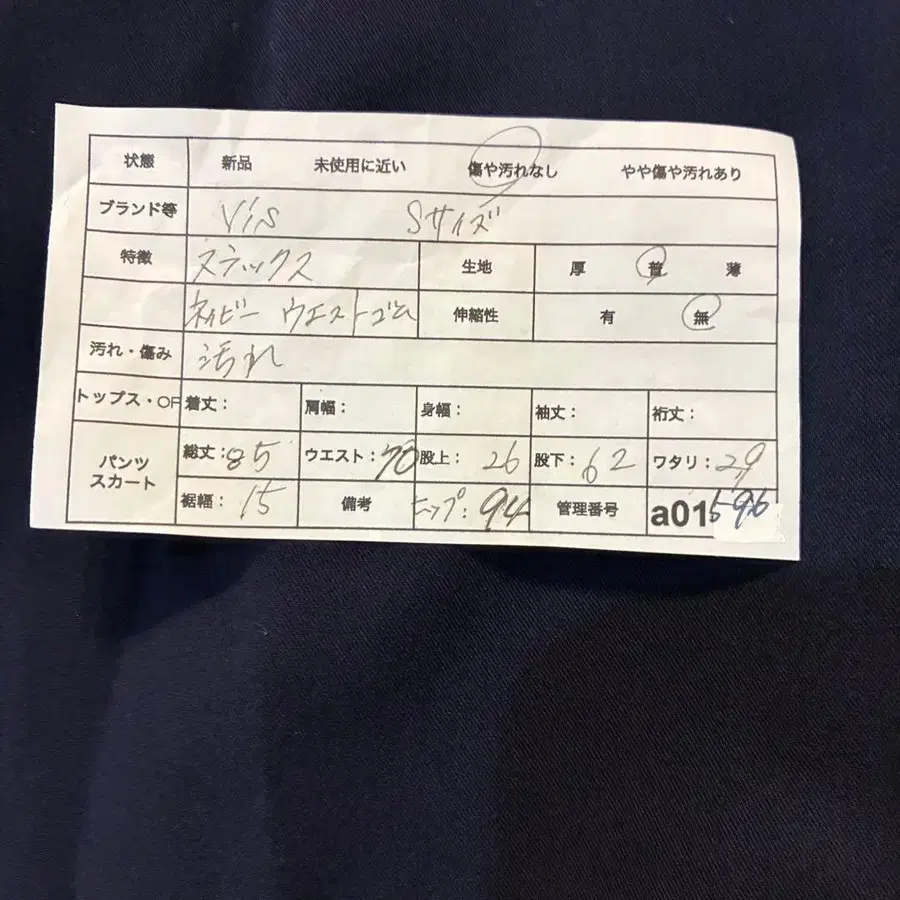 状態 新品 未使用に近い 傷や汚れなし やや傷や汚れあり
ブランド等 ViS Sサイズ
特徴 スラックス 生地 厚 普 薄
ネイビー ウエストゴム 伸縮性 有 無
汚れ・傷み 汚れ
トップス・OP 着丈: 肩幅: 身幅: 袖丈: 裄丈:
パンツ スカート 総丈:85 ウエスト:70 股上: 26 股下:62 ワタリ:29
裾幅: 15 備考 ヒップ:94 管理番号 a01596